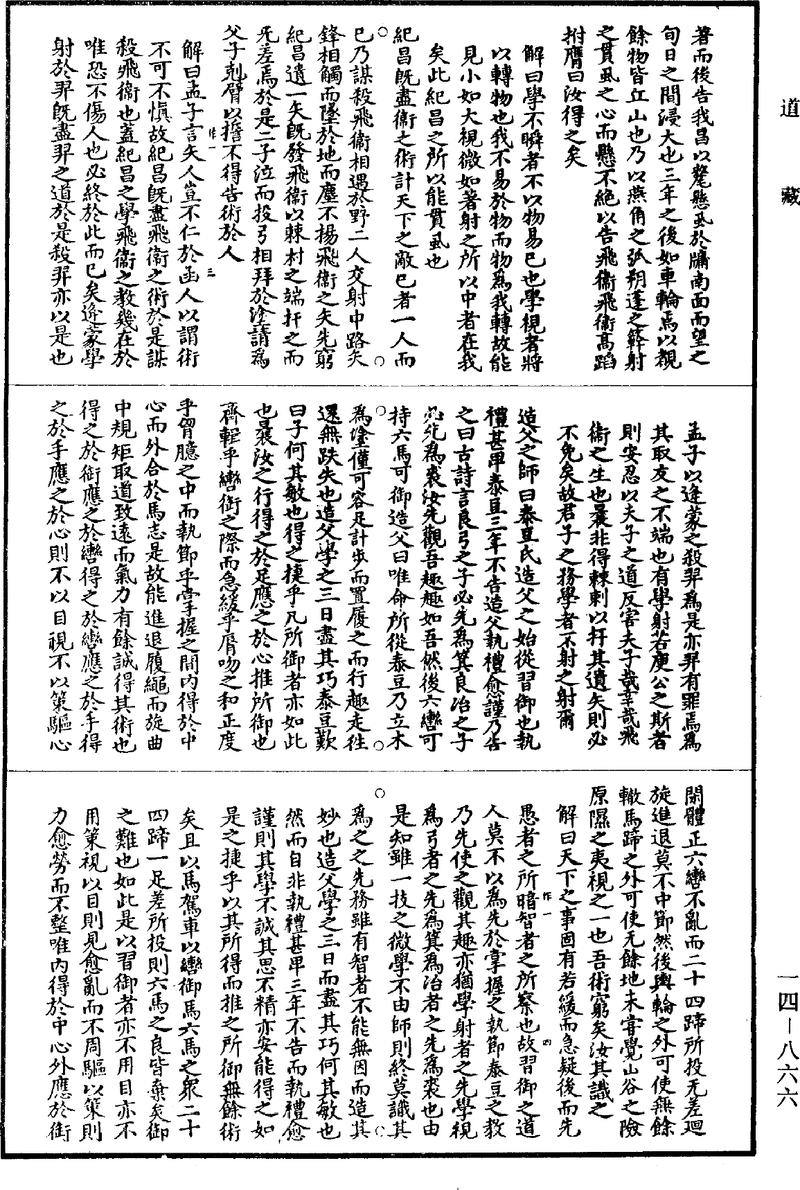 道藏
著而後告我昌以氂懸虱於牖南面而望之
旬日之間浸大也三年之後如車輪焉以覩
餘物皆丘山也乃以燕角之弧朔蓬之簳射
之貫虱之心而懸不絕以告飛衛飛衛高蹈
拊膺曰汝得之矣
解曰學不瞬者不以物易己也學視者將
以轉物也我不易於物而物為我轉故能
見小如大視微如著射之所以中者在我
矣此紀昌之所以能貫虱也
紀昌既盡衛之術計天下之敵己者一人而
已乃謀殺飛衛相遇於野二人交射中路矢
鋒相觸而墜於地而塵不揚飛衛之矢先窮
紀昌遺一矢既發飛衛以棘村之端扞之而
无差焉於是二子泣而投弓相拜於塗請為
父子剋臂以誓不得告術於人
解曰孟子言矢人豈不仁於函人以謂術
不可不慎故紀昌既盡飛衛之術於是謀
殺飛衛也蓋紀昌之學飛衛之教幾在於
唯恐不傷人也必終於此而已矣逄蒙學
射於羿既盡羿之道於是殺羿亦以是也
孟子以逄蒙之殺羿為是亦羿有罪焉為
其取友之不端也有學射若庾公之斯者
則安忍以夫子之道反害夫子哉幸哉飛
衛之生也曩非得棘刺以扞其遺矢則必
不免矣故君子之務學者不射之射爾
造父之師曰泰豆氏造父之始從習御也執
禮甚卑泰豆三年不告造父執禮愈謹乃告
之曰古詩言良弓之子必先為箕良冶之子
必先為裘汝先觀吾趣趣如吾然後六轡可
持六馬可御造父曰唯命所從泰豆乃立木
為塗僅可容足計步而置履之而行趣走往
還無跌失也造父學之三日盡其巧泰豆歎
曰子何其敏也得之捷乎凡所御者亦如此
也曩汝之行得之於足應之於心推於御也
齊輯乎轡銜之際而急緩乎脣吻之和正度
乎胷臆之中而執節乎掌握之間內得於中
心而外合於馬志是故能進退履繩而旋曲
中規矩取道致遠而氣力有餘誠得其術也
得之於銜應之於轡得之於轡應之於手得
之於手應之於心則不以目視不以策驅心
閑體正六轡不亂而二十四蹄所投无差迴
旋進退莫不中節然後輿輪之外可使無餘
轍馬蹄之外可使无餘地未嘗覺山谷之險
原隰之夷視之一也吾術窮矣汝其識之
解曰天下之事固有若緩而急疑後而先
愚者之所暗智者之所察也故習御之道
人莫不以為先於掌握之執節泰豆之教
乃先使之觀其趣亦猶學射者之先學視
為弓者之先為箕為冶者之先為裘也由
是知雖一技之微學不由師則終莫識其
為之之先務雖有智者不能無因而造其
妙也造父學之三日而盡其巧何其敏也
然而自非執禮甚卑三年不告而執禮愈
謹則其學不誠其思不精亦安能得之如
是之捷乎以其所得而推之所御無餘術
矣且以馬駕車以轡御馬六馬之衆二十
四蹄一足差所投則六馬之良皆棄矣御
之難也如此是以習御者亦不用目亦不
用策視以目則見愈亂而不周驅以策則
力愈勞而不整唯內得於中心外應於銜
一四—八六六